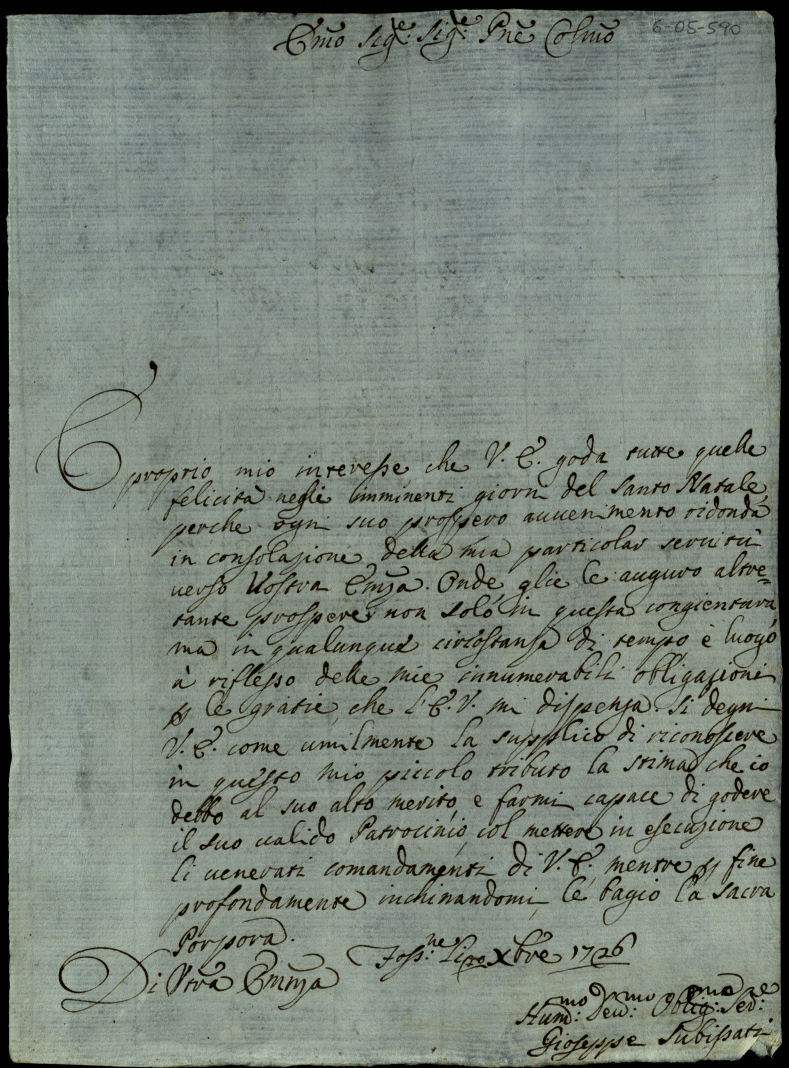 Emo Sigre: Sigre: Pñe Colmo
6-05-590
E proprio mio interesse che V. E. goda tutte quelle
felicità negli imminenti giorni del Santo Natale,
perche ogni suo prospero auuenimento ridonda
in consolazione della mia particolar seruitù
uerso Uostra Emza. Onde glie le auguro altre=
tante prospere, non solo in questa congientura
ma in qualunque circostansa di tempo, e luogo
à riflesso delle mie innumerabili obligazioni
p le gratie, che l'E. V. mi dispensa. Si degni
V. E. come umilmente la supplico di riconoscere
in questo mio piccolo tributo la stima che io
debbo al suo alto merito, e farmi capace di godere
il suo ualido Patrocinio, col mettere in esecuzione
li uenerati comandamenti di V. E., mentre p fine
profondamente inchinandomi, le bagio la sacra
Porpora.
Di Vtra Emza Foss:ne Xbre 1726
Hum:mo Deu:mo Oblig:mo Ser:re
Gioseppe Subissati